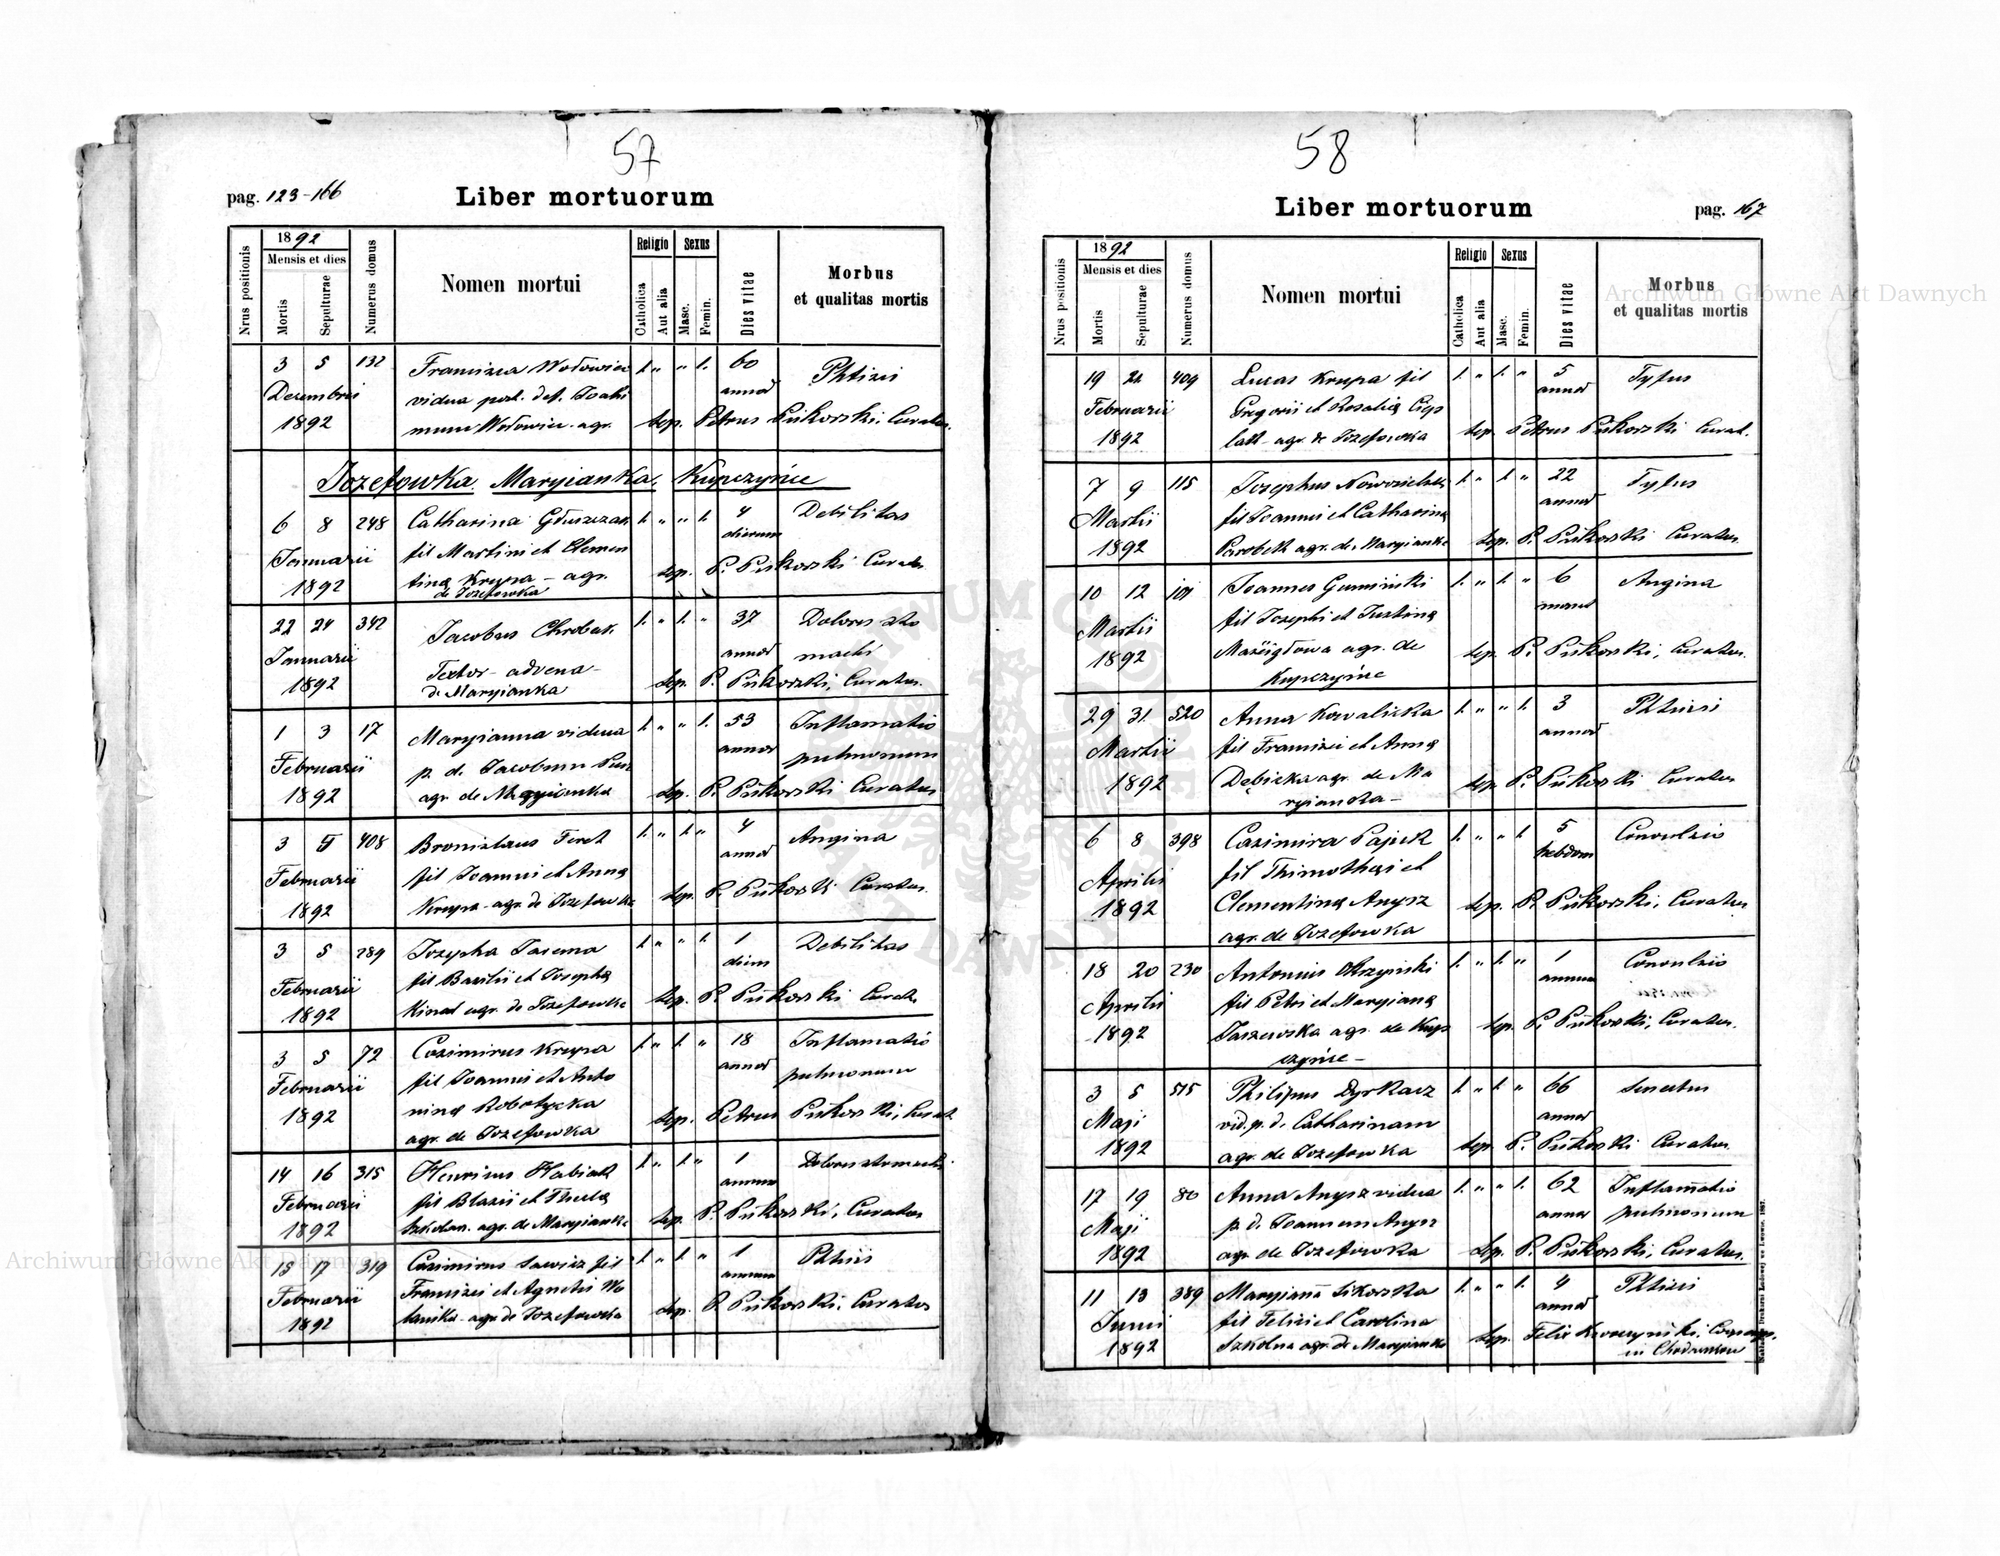 57
pag. 123-166
Liber mortuorum
Nrus positionis
1892
Mensis et dies
Mortis
Sepulturae
Numerus domus
Nomen mortui
Religio
Catholica
Aut alia
Sexus
Masc.
Femin.
Dies vitae
Morbus
et qualitas mortis
3 5 132 Francisca Wołowiec 1. " " 1. 60 Phtisis
Decembris vidua post. def. Joahi annor
1892 mum Wołowiec agr. Sep. Petrus Piikorski, Curatus.
Jozefowka. Maryianka, Kupczyńce
6 8 248 Catharina Głuszczak 1. " " 1. 4 Debilitas
Januarii fil Martini et Clemen dierum
1892 tina Krupa - agr. Sep. P. Piikorski Curatus
de Jozefowka
22 24 342 Jacobus Chrobak 1. " 1. " 37 Dolores sto
Januarii Textor - advena - annor machi
1892 de Maryianka Sep. P. Piikorski, Curatus.
1 3 17 Maryianna vidua 1. " " 1. 53 Inflamatio
Februarii p. d. Jacobum annor pulmonum
1892 agr. de Maryianka Sep. P. Piikorski Curatus
3 5 408 Bronislaus Feret 1. " 1. " 4 Angina
Februarii fil Joannis et Anna annor
1892 Krupa - agr. de Jozefowka Sep. P. Piikorski Curatus.
3 5 289 Jozepha 1. " " 1. 1 Debilitas
Februarii fil Basilii et Josepha diem
1892 agr. de Jozefowka Sep. P. Piikorski Curatus
3 5 72 Casimirus Krupa 1. " 1. " 18 Inflamatio
Februarii fil Joannis et Anto annor pulmonum
1892 nina Robotycka Sep. Petrus Piikorski, Curat
agr. de Jozefowka
14 16 315 Henricus Habiak 1. " 1. " 1 Dolores stomachi
Februarii fil Blasii et Thecla annum
1892 Szkolan. agr. de Maryianka Sep. P. Piikorski, Curatus
15 17 319 Casimirus Sawicz fil 1. " 1. " 1 Phtisis
Februarii Francisci et Agnetis Wo annum
1892 agr. de Jozefowka Sep. P. Piikorski, Curatus
58
Liber mortuorum
pag. 167
Nrus positionis
1892
Mensis et dies
Mortis
Sepulturae
Numerus domus
Nomen mortui
Religio
Catholica
Aut alia
Sexus
Masc.
Femin.
Dies vitae
Morbus
et qualitas mortis
19 21 409 Lucas Krupa fil 1. " 1. " 5 Tyfus
Februarii Gregorii et Rosalia annor
1892 agr. de Jozefowka Sep. Petrus Piikorski Curat.
7 9 115 Josephus 1. " 1. " 22 Tyfus
Martii fil Joannis et Catharina annor
1892 Parobek agr. de Maryianka Sep. P. Piikorski Curatus.
10 12 101 Joannes Guminski 1. " 1. " 6 Angina
Martii fil Josephi et Justina
1892 agr. de Sep. P. Piikorski, Curatus.
Kupczyńce
29 31. 520 Anna Kowaliska 1. " " 1. 3 Phtisis
Martii fil Francisci et Anna annor
1892 Dębicka agr. de Ma Sep. P. Piikorski Curatus
ryianka -
6 8 398 Casimira Pajuk 1. " " 1. 5 Convulsio
Aprilis fil Thimothei et hebdom
1892 Clementina Anysz Sep. P. Piikorski, Curatus
agr. de Jozefowka
18 20 230 Antonius 1. " 1. " 1 Convulsio
Aprilis fil Petri et Maryianna annum
1892 Taszewska agr. de Kup Sep. P. Piikorski, Curatus.
czyńce -
3 5 515 Philipus Dyrkacz 1. " 1. " 66 Senectus
Maji vid. p. d. Catharinam annor
1892 agr. de Jozefowka Sep. P. Piikorski Curatus
17 19 80 Anna Anysz vidua 1. " " 1. 62 Inflamatio
Maji p. d. Joannem Anysz annor pulmonum
1892 agr. de Jozefowka Sep. P. Piikorski, Curatus.
11 13 389 Maryiana Sikorska 1. " " 1. 4 Phtisis
Junii fil Felicis et Carolina annor
1892 Szkolna agr. de Maryianka Sep. Felix
in
Nakładem Drukarni Ludowej we Lwowie. 1887.
Archiwum Główne Akt Dawnych
Archiwum Główne Akt Dawnych
ARCHIWUM GŁÓWNE AKT DAWNYCH